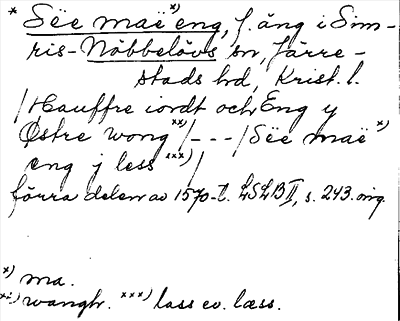 * Sëe maë *) eng, f. äng i Sim-
ris-Nöbbelövs sn, Järre-
stads hd, Krist. l.
/Hauffre iordt och Eng y
Østre wong **)/---/Sëe maë *)
eng j less ***)/
förra delen av 1570-t. LSLB II, s. 243. mg.
*) ma.
**) wangh. ***) lass ev. læss.